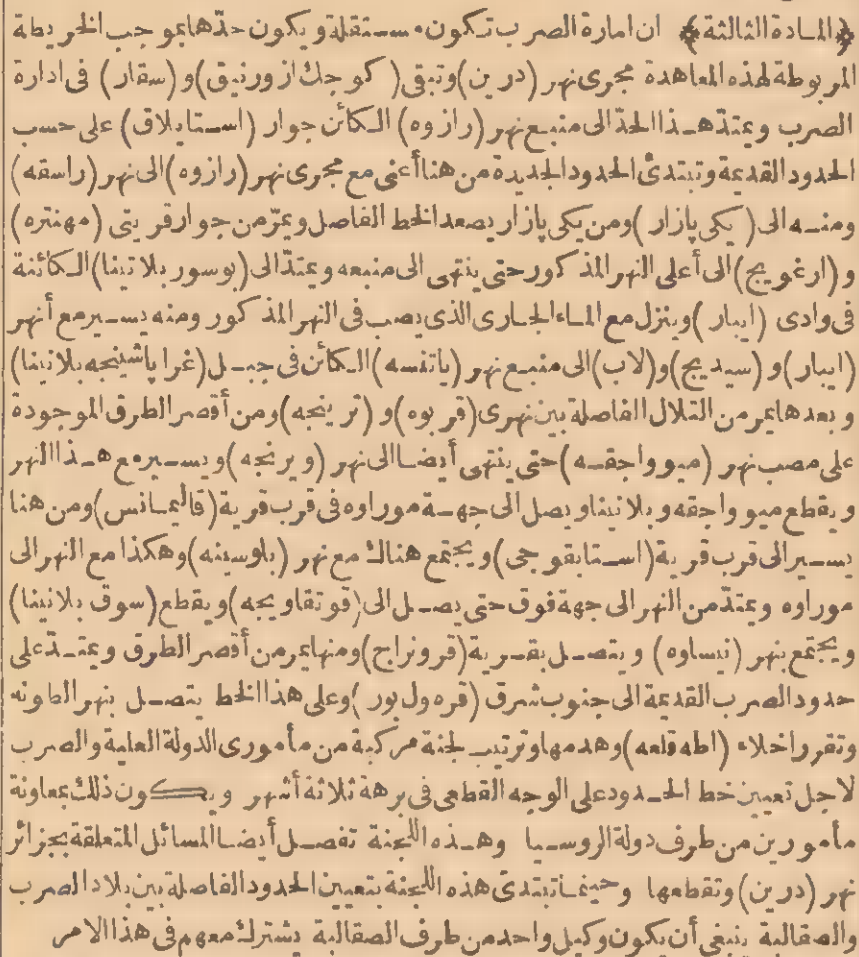 ﴿المادة الثالثة﴾ ان امارة الصرب تكون مستقلة ويكون حدّها بموجب الخريطة
المربوطة لهذه المعاهدة مجرى نهر (درين) وتبقى (كوجك ازورنيق) و (سقار) فى ادارة
الصرب ويمتدّ هذا الحدّ الى منبع نهر (رازوه) الكائن جوار (استايلاق) على حسب
الحدود القديمة وتبتدئ الحدود الجديدة من هنا أعنى مع مجرى نهر (رازوه) الى نهر (راسقه)
ومنه الى (يكى پازار) ومن يكى پازار يصعد الخط الفاصل ويمرّ من جوار قريتى (مهنتره)
و (ارغويج) الى أعلى النهر المذكور حتى ينتهى الى منبعه ويمتدّ الى (بوسور بلاتينا) الكائنة
فى وادى (ايبار) وينزل مع الماء الجارى الذى يصب فى النهر المذكور ومنه يسير مع أنهر
(ايبار) و (سيديج) و (لاب) الى منبع نهر (ياتنسه) الكائن فى جبل (غراپاشينجه بلانينا)
وبعدها يمر من التلال الفاصلة بين نهرى (قربوه) و (ترينجه) ومن أقصر الطرق الموجودة
على مصب نهر (ميوواجقه) حتى ينتهى أيضا الى نهر (ويرنجه) ويسير مع هذا النهر
ويقطع ميوواجقه وبلانينا ويصل الى جهة موراوه فى قرب قرية (قاليمانس) ومن هنا
يسير الى قرب قرية (استايقوجى) ويجتمع هناك مع نهر (بلوسينه) وهكذا مع النهر الى
موراوه ويمتدّ من النهر الى جهة فوق حتى يصل الى (قوتقاويجه) ويقطع (سوق بلانينا)
ويجتمع بنهر (نيساوه) ويتصل بقرية (قرونراج) ومنها يمر من أقصر الطرق ويمتدّ على
حدود الصرب القديمة الى جنوب شرق (قره ول بور) وعلى هذا الخط يتصل بنهر الطونه
وتقرر اخلاء (اطه قلعه) وهدمها وترتيب لجنة مركبة من مأمورى الدولة العلية والصرب
لاجل تعيين خط الحدود على الوجه القطعى فى برهة ثلاثة أشهر ويكون ذلك بمعاونة
مأمورين من طرف دولة الروسيا وهذه اللجنة تفصل أيضا المسائل المتعلقة بجزائر
نهر (درين) وتقطعها وحينما تبتدئ هذه اللجنة بتعيين الحدود الفاصلة بين بلاد الصرب
والصقالبة ينبغى أن يكون وكيل واحد من طرف الصقالبة يشترك معهم فى هذا الامر